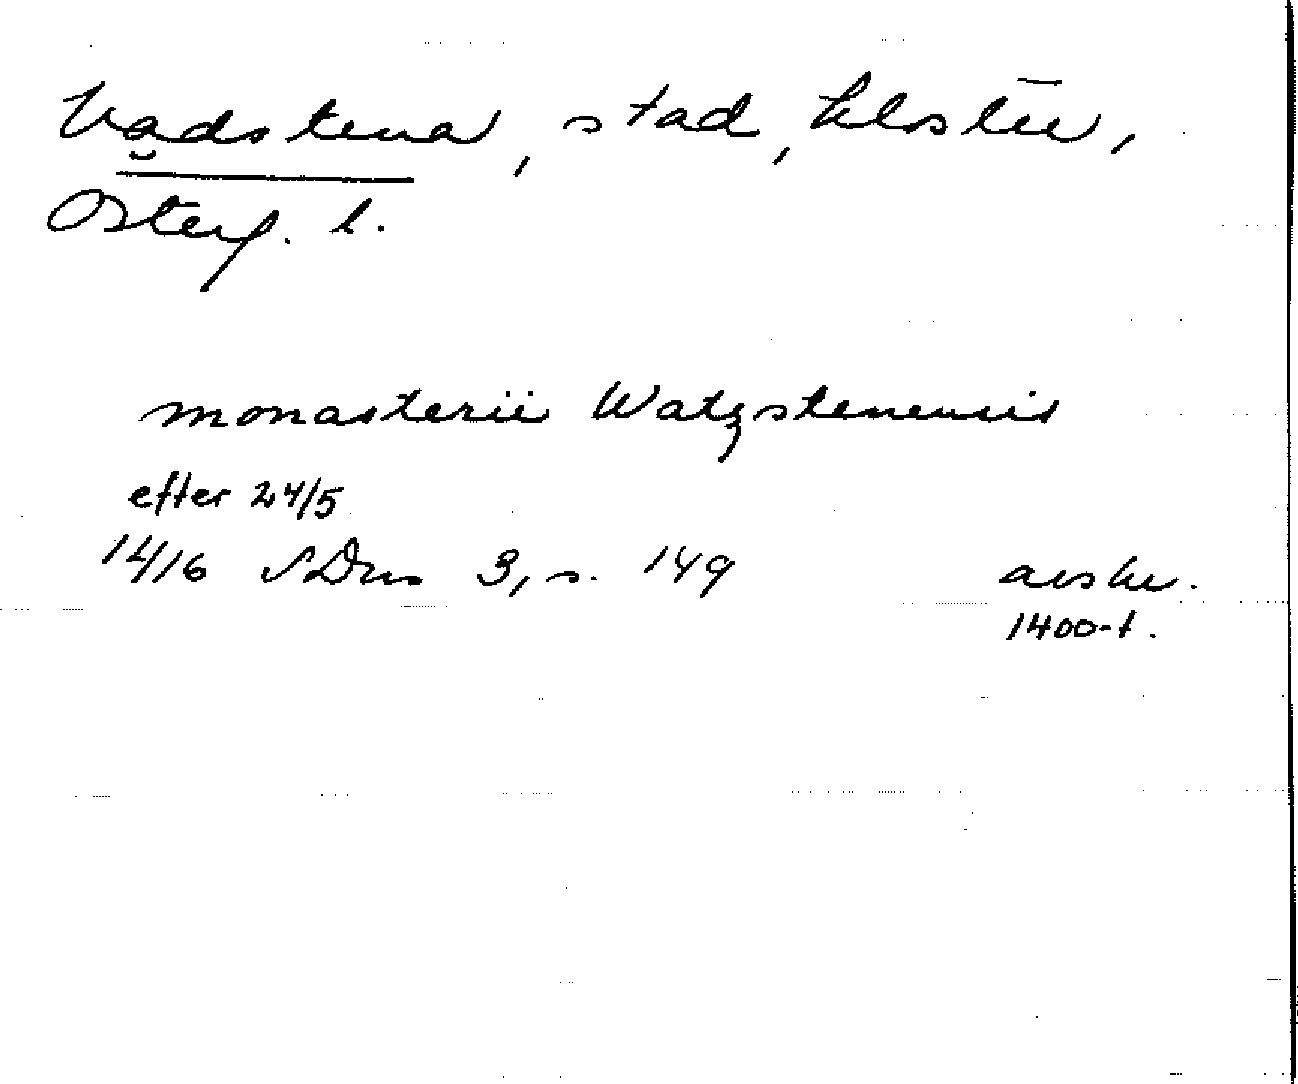 Vadstena, stad, kloster,
Österg. l.
monasterii Watzstenensis
efter 24/5
1416 SDns 3, s. 149 avskr.
1400-t.